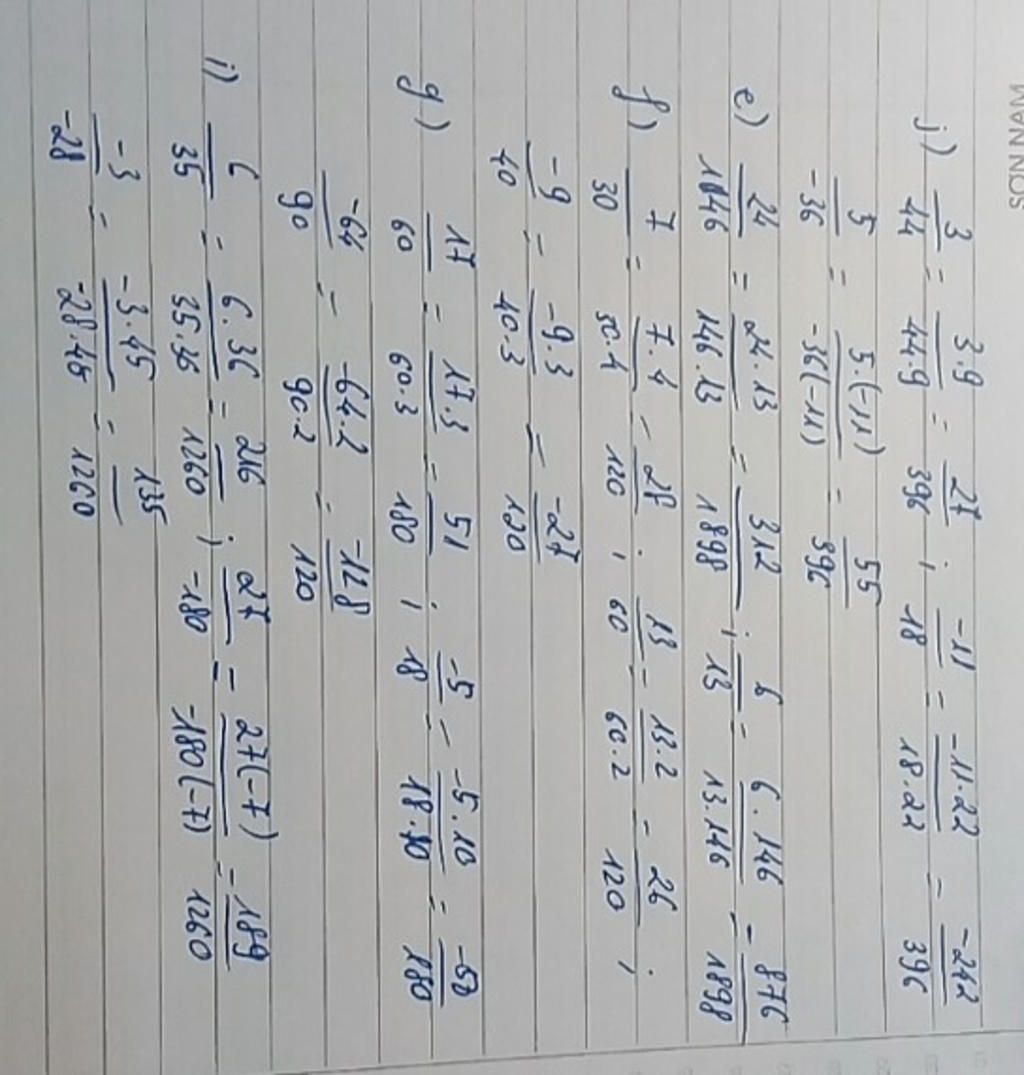 MAN NOS
j) 3/44 = 3.9/44.9 = 27/396 ; -11/18 = -11.22/18.22 = -242/396
5/-36 = 5.(-11)/-36(-11) = 55/396
e) 24/146 = 24.13/146.13 = 312/1898 ; 6/13 = 6.146/13.146 = 876/1898
f) 7/30 = 7.4/30.4 = 28/120 ; 13/60 = 13.2/60.2 = 26/120 ;
-9/40 = -9.3/40.3 = -27/120
g) 17/60 = 17.3/60.3 = 51/180 ; -5/18 = -5.10/18.10 = -50/180
-64/90 = -64.2/90.2 = -128/120
i) 6/35 = 6.36/35.36 = 216/1260 ; 27/-180 = 27(-7)/-180(-7) = -189/1260
-3/-28 = -3.45/-28.45 = 135/1260